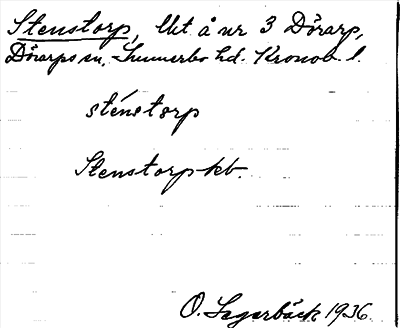 Stenstorp, lht å nr 3 Dörarp,
Dörarps sn, Sunnerbo hd. Kronob. l.
sténstorp
Stenstorp kb.
O. Lagerbäck 1936.